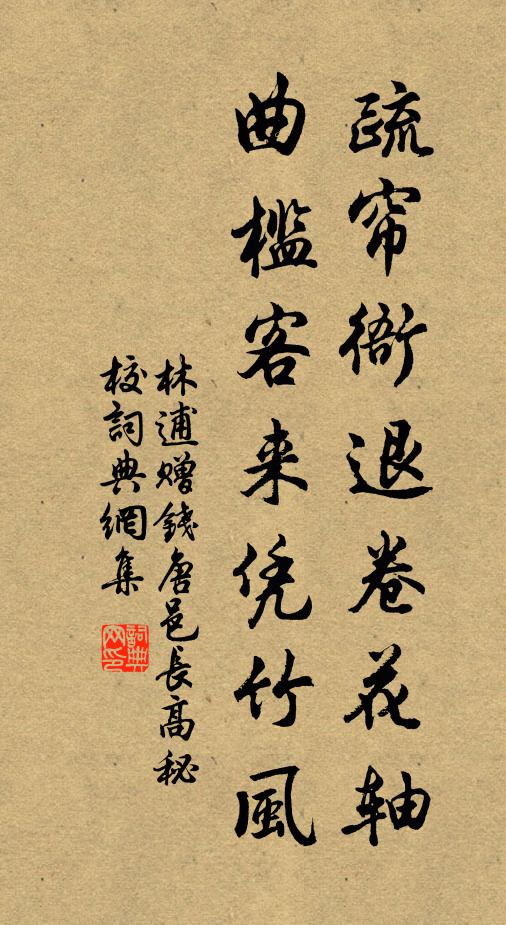 疏帘衙退卷花轴
曲槛客来凭竹風
林逋赠錢唐邑長高秘
校詞典網集
詞典网印